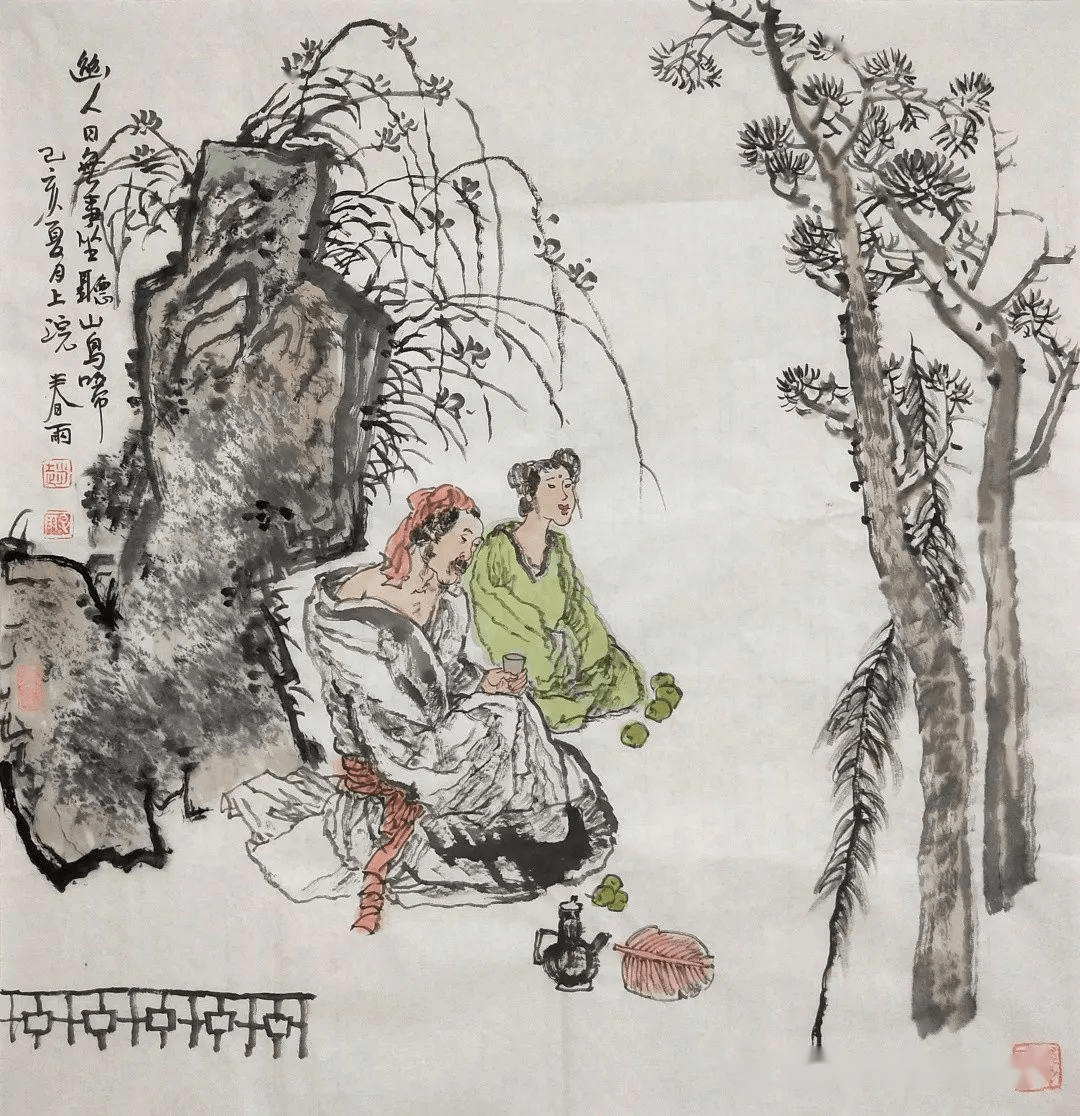 幽人日無事坐聽山鳥啼
己亥夏月上浣 春雨